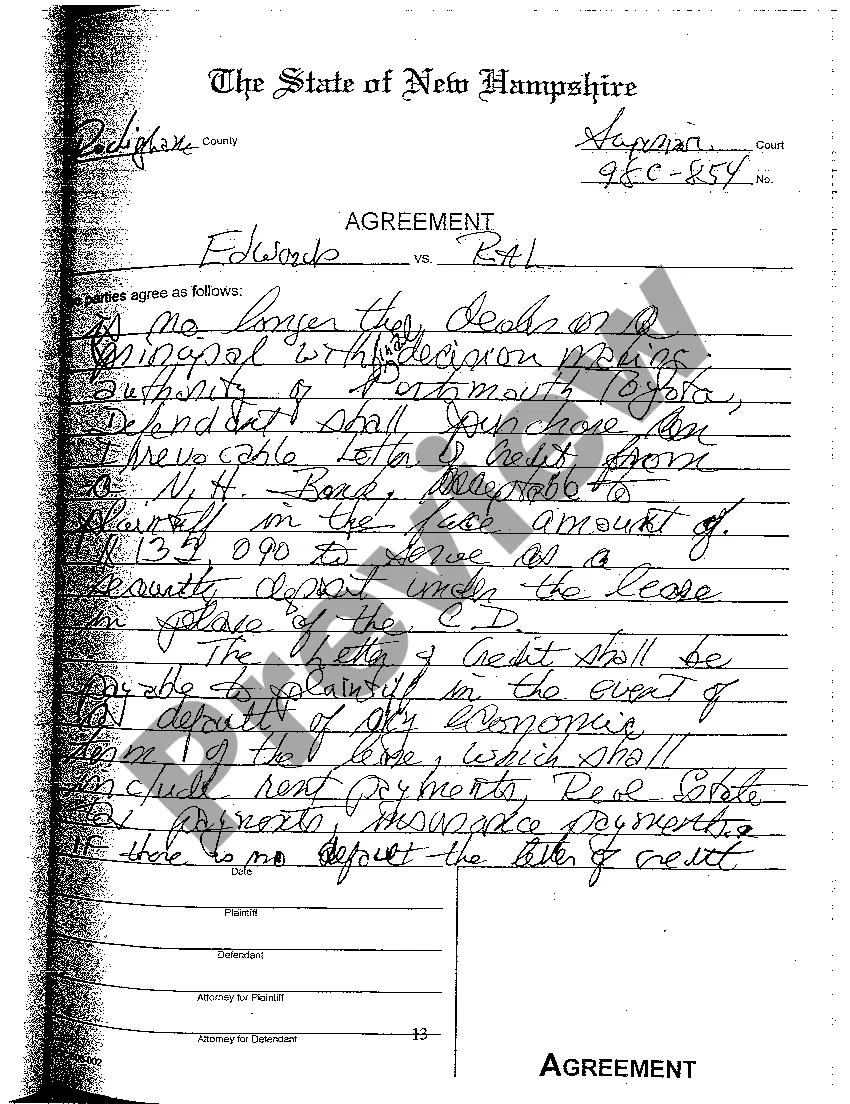 The State of New Hampshire
Rockingham County
Superior Court
98C-854 No.
AGREEMENT
Edwards vs. RAL
parties agree as follows:
is no longer the dealer or a
principal with final decision making
authority of Portsmouth Toyota,
Defendant shall purchase an
Irrevocable Letter of Credit from
a N.H. Bank, acceptable to
plaintiff in the face amount of
135,090 to serve as a
security deposit under the lease
in place of the C.D.
The Letter of Credit shall be
payable to plaintiff in the event of
default of any economic
term of the lease, which shall
include rent payments, Real Estate
Tax payments, insurance payments.
If there is no default the letter of credit
Date
Plaintiff
Defendant
Attorney for Plaintiff
13
Attorney for Defendant
AGREEMENT
Preview